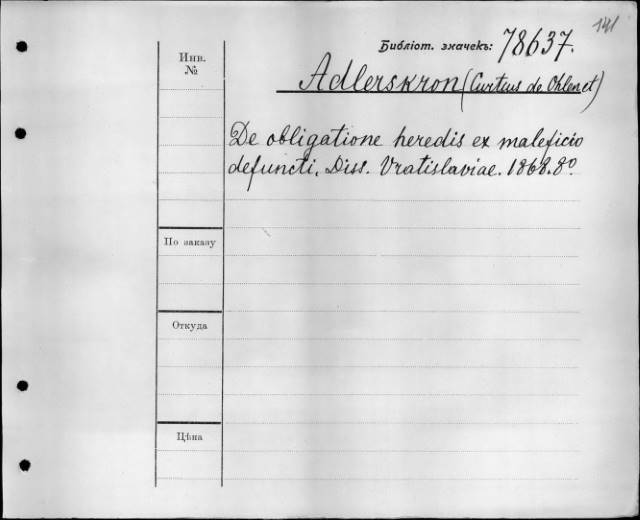 141
Библіот. значекъ: 78637.
Инв.
№
Adlerskron (Curtius de Ohlen et)
De obligatione heredis ex maleficio
defuncti. Diss. Vratislaviae. 1868. 8º
По заказу
Откуда
Цѣна